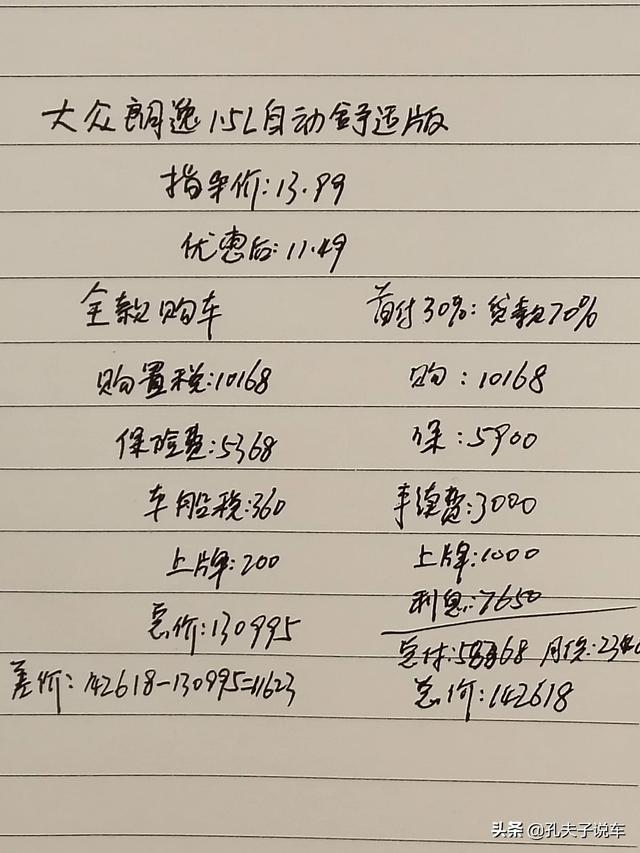 大众朗逸1.5L自动舒适版
指导价:13.99
优惠后:11.49
全款购车 首付30%:贷款70%
购置税:10168 购:10168
保险费:5368 保:5900
车船税:360 手续费:3000
上牌:200 上牌:1000
利息:7650
总价:130995 总付: 月供:
差价:142618-130995=11623 总价:142618
头条 @孔夫子说车